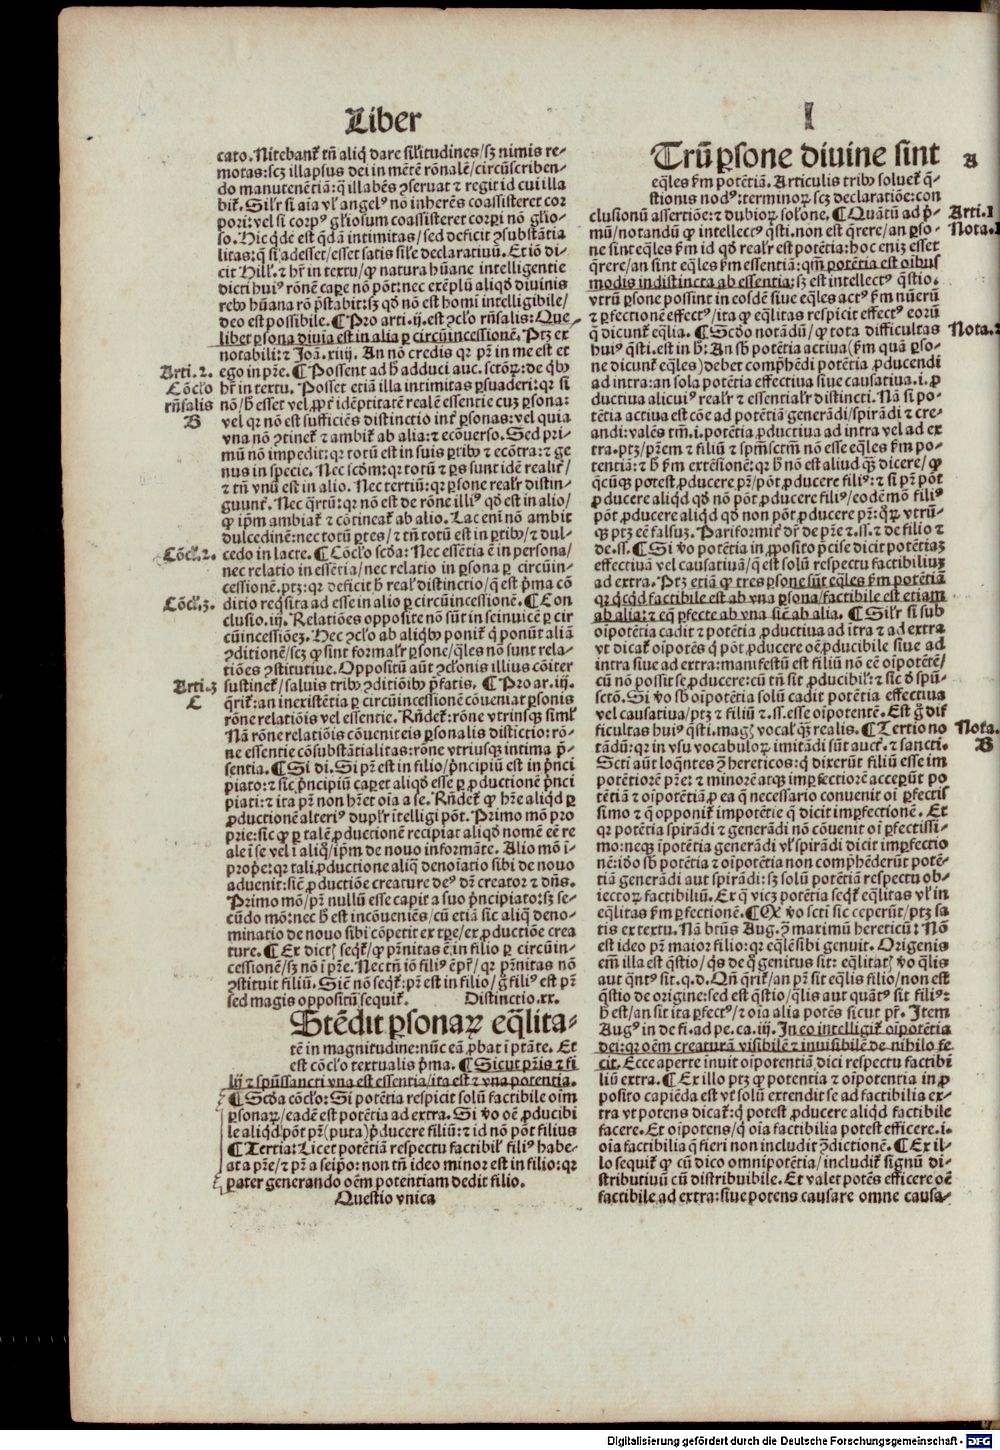 Liber
I
cato. Nitebant᷑ tñ aliq̃ dare silitudines/sʒ nimis re-
motas: scʒ illapsus dei in mētē rōnalē/circūscriben-
do manutenētiā: q̃ illabēs ꝯseruat ⁊ regit id cui illa
bit᷑. Silr̃ si aīa vl̓ angelꝰ nō inherēs coassisteret cor
pori: vel si corpꝰ gl̓iosum coassisteret corpi nō gl̓io-
so. Hic q̃dē est q̃dā intimitas/sed deficit ꝯsubstātia
litas: q̃ si adesset/esset satis sil̓e declaratiuū. Et iō di-
cit Hill. ⁊ hr̃ in textu/ꝙ natura hūane intelligentie
dicti huiꝰ rōnē capere nō pōt: nec exēplū aliqd̓ diuinis
rebꝰ hūana rō p̄stabit: sʒ qd̓ nō est homi intelligibile/
deo est possibile. ¶ Pro arti. ij. est ꝯcl̓o rn̄salis: Que
libet ꝑsona diuīa est in alia ꝑ circūincessionē. Ptʒ ex
notabili: ⁊ Joā. xiiij. An nō credis qr pr̃ in me est et
ego in pr̃e. ¶ Possent ad h̓ adduci auc. sctōꝝ: de qb̓ꝰ
hr̃ in textu. Posset etiā illa intimitas ꝑsuaderi: qr si
nō/h̓ esset vel ꝓpt̓ idēptitatē realē essentie cuʒ ꝑsona:
vel qr nō est sufficiēs distinctio int̓ ꝑsonas: vel quia
vna nō ꝯtinet᷑ ⁊ ambit᷑ ab alia: ⁊ ecōuerso. Sed pri-
mū nō impedit: qr totū est in suis ptibꝰ ⁊ ecōtra: ⁊ ge
nus in specie. Nec scd̓m: qr totū ⁊ ps sunt idē realit̓/
⁊ tñ vnū est in alio. Nec tertiū: qr ꝑsone realr̃ distin-
guunt᷑. Nec q̃rtū: qr nō est de rōne illiꝰ qd̓ est in alio/
ꝙ ip̄m ambiat᷑ ⁊ cōtineat᷑ ab alio. Lac enī nō ambit
dulcedinē: nec totū ptes/⁊ tñ totū est in ptibꝰ/⁊ dul-
cedo in lacte. ¶ Cōcl̓o scd̓a: Nec essētia ē in persona/
nec relatio in essētia/nec relatio in ꝑsona ꝑ circūin-
cessionē. ptʒ: qr deficit h̓ real̓ distinctio/q̃ est p̄ma cō
ditio reqsita ad esse in alio ꝑ circūincessionē. ¶ Con
clusio. iij. Relatiōes opposite nō sūt in seinuicē ꝑ cir
cūincessiōeʒ. Hec ꝯcl̓o ab aliqbꝰ ponit᷑ q̃ ponūt aliā
ꝯditionē/scʒ ꝙ sint formalr̃ ꝑsone/q̃les nō sunt rela-
tiōes ꝯstitutiue. Oppositū aūt ꝯcl̓onis illius cōiter
sustinet᷑/saluis tribꝰ ꝯditiōibꝰ p̄fatis. ¶ Pro ar. iij.
q̃rit᷑: an inexistētia ꝑ circūincessionē cōueniat ꝑsonis
rōne relatiōis vel essentie. Rn̄det᷑: rōne vtrinsqʒ siml̓
Nā rōne relatiōis cōueniteis ꝑsonalis distictio: rō-
ne essentie cōsubstātialitas: rōne vtriusqʒ intima p̄-
sentia. ¶ Si di. Si pr̃ est in filio/p̄ncipiū est in p̄nci
piato: ⁊ sic p̄ncipiū caperet aliqd̓ esse ꝑ ꝓductionē p̄nci
piati: ⁊ ita pr̃ non hr̃et oia a se. Rn̄det᷑ ꝙ hr̃e aliqd̓ ꝑ
ꝓductionē alteriꝰ duplr̃ itelligi pōt. Primo mō pro
prie: sic ꝙ ꝑ talē ꝓductionē recipiat aliqd̓ nomē eē re
ale ī se vel ī aliq̃/ip̄m de nouo informāte. Alio mō ī-
prop̓e: qr tali ꝓductione aliq̃ denoīatio sibi de nouo
aduenit: sicut ꝓductiōe creature deꝰ dr̃ creator ⁊ dñs.
Primo mō/pr̃ nullū esse capit a suo p̄ncipiato: sʒ se-
cūdo mō: nec h̓ est incōueniēs/cū etiā sic aliq̃ deno-
minatio de nouo sibi cōpetit ex tp̄e/ex ꝓductiōe crea
ture. ¶ Ex dictꝭ seqt᷑/ꝙ pr̃nitas ē in filio ꝑ circūin-
cessionē/sʒ nō ī pr̃e. Nec tñ iō filiꝰ ē pr̃/qr pr̃nitas nō
ꝯstituit filiū. Sic nō seqt᷑: pr̃ est in filio/g̃ filiꝰ est pr̃
sed magis oppositū sequit᷑. Distinctio. xx.
Stēdit ꝑsonaꝝ eq̃lita-
tē in magnitudine: nūc eā ꝓbat ī ptāte. Et
est cōcl̓o textualis p̄ma. ¶ Sicut pr̃is ⁊ fi
lij ⁊ spūssancti vna est essentia/ita est ⁊ vna potentia.
¶ Scd̓a cōcl̓o: Si potētia respicit solū factibile oīm
ꝑsonaꝝ/eadē est potētia ad extra. Si vō oē ꝓducibi
le aliqd̓ pōt pr̃ (puta) ꝓducere filiū: ⁊ id nō pōt filius
¶ Tertia: Licet potētiā respectu factibil̓ filiꝰ habe-
at a pr̃e/⁊ pr̃ a seipo: non tñ ideo minor est in filio: qr
pater generando oēm potentiam dedit filio.
Questio vnica
Arti. 2.
Cōcl̓o
rn̄salis
B
Cōcl̓. 2.
Cōcl̓. 3.
Arti. 3
C
Trū ꝑsone diuine sint
eq̃les ẜm potētiā. Articulis tribꝰ soluet᷑ q̃-
stionis nodꝰ: terminoꝝ scʒ declaratiōe: con
clusionū assertiōe: ⁊ dubioꝝ sol̓one. ¶ Quātū ad p̄-
mū/notandū ꝙ intellectꝰ qsti. non est q̃rere/an ꝑso-
ne sint eq̃les ẜm id qd̓ realr̃ est potētia: hoc eniʒ esset
q̃rere/an sint eq̃les ẜm essentiā: qm̃ potētia est oībus
modis indistincta ab essentia: sʒ est intellectꝰ q̃stio.
vtrū ꝑsone possint in eosdē siue eq̃les actꝰ ẜm nūerū
⁊ ꝑfectionē effectꝰ/ita ꝙ eq̃litas respicit effectꝰ eorū
q̃ dicunt᷑ eq̃lia. ¶ Scd̓o notādū/ꝙ tota difficultas
huiꝰ qsti. est in h̓: An sb̓ potētia actiua (ẜm quā ꝑso-
ne dicunt᷑ eq̃les) debet comp̄hēdi potētia ꝓducendi
ad intra: an sola potētia effectiua siue causatiua. i. ꝓ
ductiua alicuiꝰ realr̃ ⁊ essentialr̃ distincti. Nā si po-
tētia actiua est cōe ad potētiā generādi/spirādi ⁊ cre-
andi: valēs tm̃. i. potētia ꝓductiua ad intra vel ad ex
tra. ptʒ/pr̃em ⁊ filiū ⁊ spm̃sctm̃ nō esse eq̃les ẜm po-
tentiā: ⁊ h̓ ẜm extēsionē: qr h̓ nō est aliud qʒ dicere/ꝙ
q̃cūqʒ potest ꝓducere pr̃/pōt ꝓducere filiꝰ: ⁊ si pr̃ pōt
ꝓducere aliqd̓ qd̓ nō pōt ꝓducere filiꝰ/eodē mō filiꝰ
pōt ꝓducere aliqd̓ qd̓ non pōt ꝓducere pr̃: qꝝ vtrū-
qʒ ptʒ eē falsuʒ. Pariformit̓ dr̃ de pr̃e ⁊. ss. ⁊ de filio ⁊
de. ss. ¶ Si vō potētia in ꝓposito p̄cise dicit potētiaʒ
effectiuā vel causatiuā/q̃ est solū respectu factibiliuʒ
ad extra. Ptʒ etiā ꝙ tres ꝑsone sūt eq̃les ẜm potētiā
qr qcqd̓ factibile est ab vna ꝑsona/factibile est etiam
ab alia: ⁊ eq̃ ꝑfecte ab vna sic̄ ab alia. ¶ Silr̃ si sub
oīpotētia cadit ⁊ potētia ꝓductiua ad ītra ⁊ ad extra
vt dicat᷑ oīpotēs q̃ pōt ꝓducere oē ꝓducibile siue ad
intra siue ad extra: manifestū est filiū nō eē oīpotētē/
cū nō possit se ꝓducere: cū tñ sit ꝓducibil̓: ⁊ sic d̓ spū-
sctō. Si vō sb̓ oīpotētia solū cadit potētia effectiua
vel causatiua/ptʒ ⁊ filiū ⁊. ss. esse oīpotentē. Est g̃ dif
ficultas huiꝰ qsti. magꝭ vocal̓ qʒ realis. ¶ Tertio no
tādū: qr in vsu vocabuloꝝ imitādi sūt auct̓. ⁊ sancti.
Scti aūt loqntes ꝯ hereticos: q̃ dixerūt filiū esse im
potētiorē pr̃e: ⁊ minorē atqʒ imꝑfectiorē acceperūt po
tētiā ⁊ oīpotētiā ꝓ ea q̃ necessario conuenit oī ꝑfectis
simo ⁊ q̃ opponit᷑ impotētie q̃ dicit imꝑfectionē. Et
qr potētia spirādi ⁊ generādi nō cōuenit oī ꝑfectissi-
mo: neqʒ īpotētia generādi vl̓ spirādi dicit imꝑfectio
nē: iō sb̓ potētia ⁊ oīpotētia non comp̄hēderūt potē-
tiā generādi aut spirādi: sʒ solū potētiā respectu ob-
iectoꝝ factibiliū. Ex q̃ vicʒ potētia seqt᷑ eq̃litas vl̓ in
eq̃litas ẜm ꝑfectionē. ¶ Qꝙ vō scti sic ceperūt/ptʒ sa
tis ex textu. Nā btūs Aug. ꝯ maximū hereticū: Nō
est ideo pr̃ maior filio: qr eq̃lē sibi genuit. Origenis
em̃ illa est qstio/q̃s de q̃ genitus sit: eq̃litatꝭ vō q̃lis
aut q̃ntꝰ sit. q. d. Qn̄ q̃rit᷑/an pr̃ sit eq̃lis filio/non est
q̃stio de origine: sed est q̃stio/q̃lis aut quātꝰ sit filiꝰ:
h̓ est/an sit ita ꝑfectꝰ/⁊ oia alia potēs sicut pr̃. Item
Augꝰ in de fi. ad pe. ca. iij. In eo intelligit᷑ oīpotētia
dei: qr oēm creaturā visibilē ⁊ inuisibilē de nihilo fe
cit. Ecce aperte inuit oīpotentiā dici respectu factibi
liū extra. ¶ Ex illo ptʒ ꝙ potentia ⁊ oīpotentia in ꝓ
posito capiēda est vt solū extendit se ad factibilia ex-
tra vt potens dicat᷑: q̃ potest ꝓducere aliqd̓ factibile
facere. Et oīpotens/q̃ oia factibilia potest efficere. i.
oia factibilia q̃ fieri non includit ꝯdictionē. ¶ Ex il-
lo sequit᷑ ꝙ cū dico omnipotētia/includit᷑ signū di-
stributiuū cū distribuibile. Et valet potēs efficere oē
factibile ad extra: siue potens causare omne causa-
A
Arti. 1
Nota. 1
Nota. 2
Nota.
B
Digitalisierung gefördert durch die Deutsche Forschungsgemeinschaft - DFG